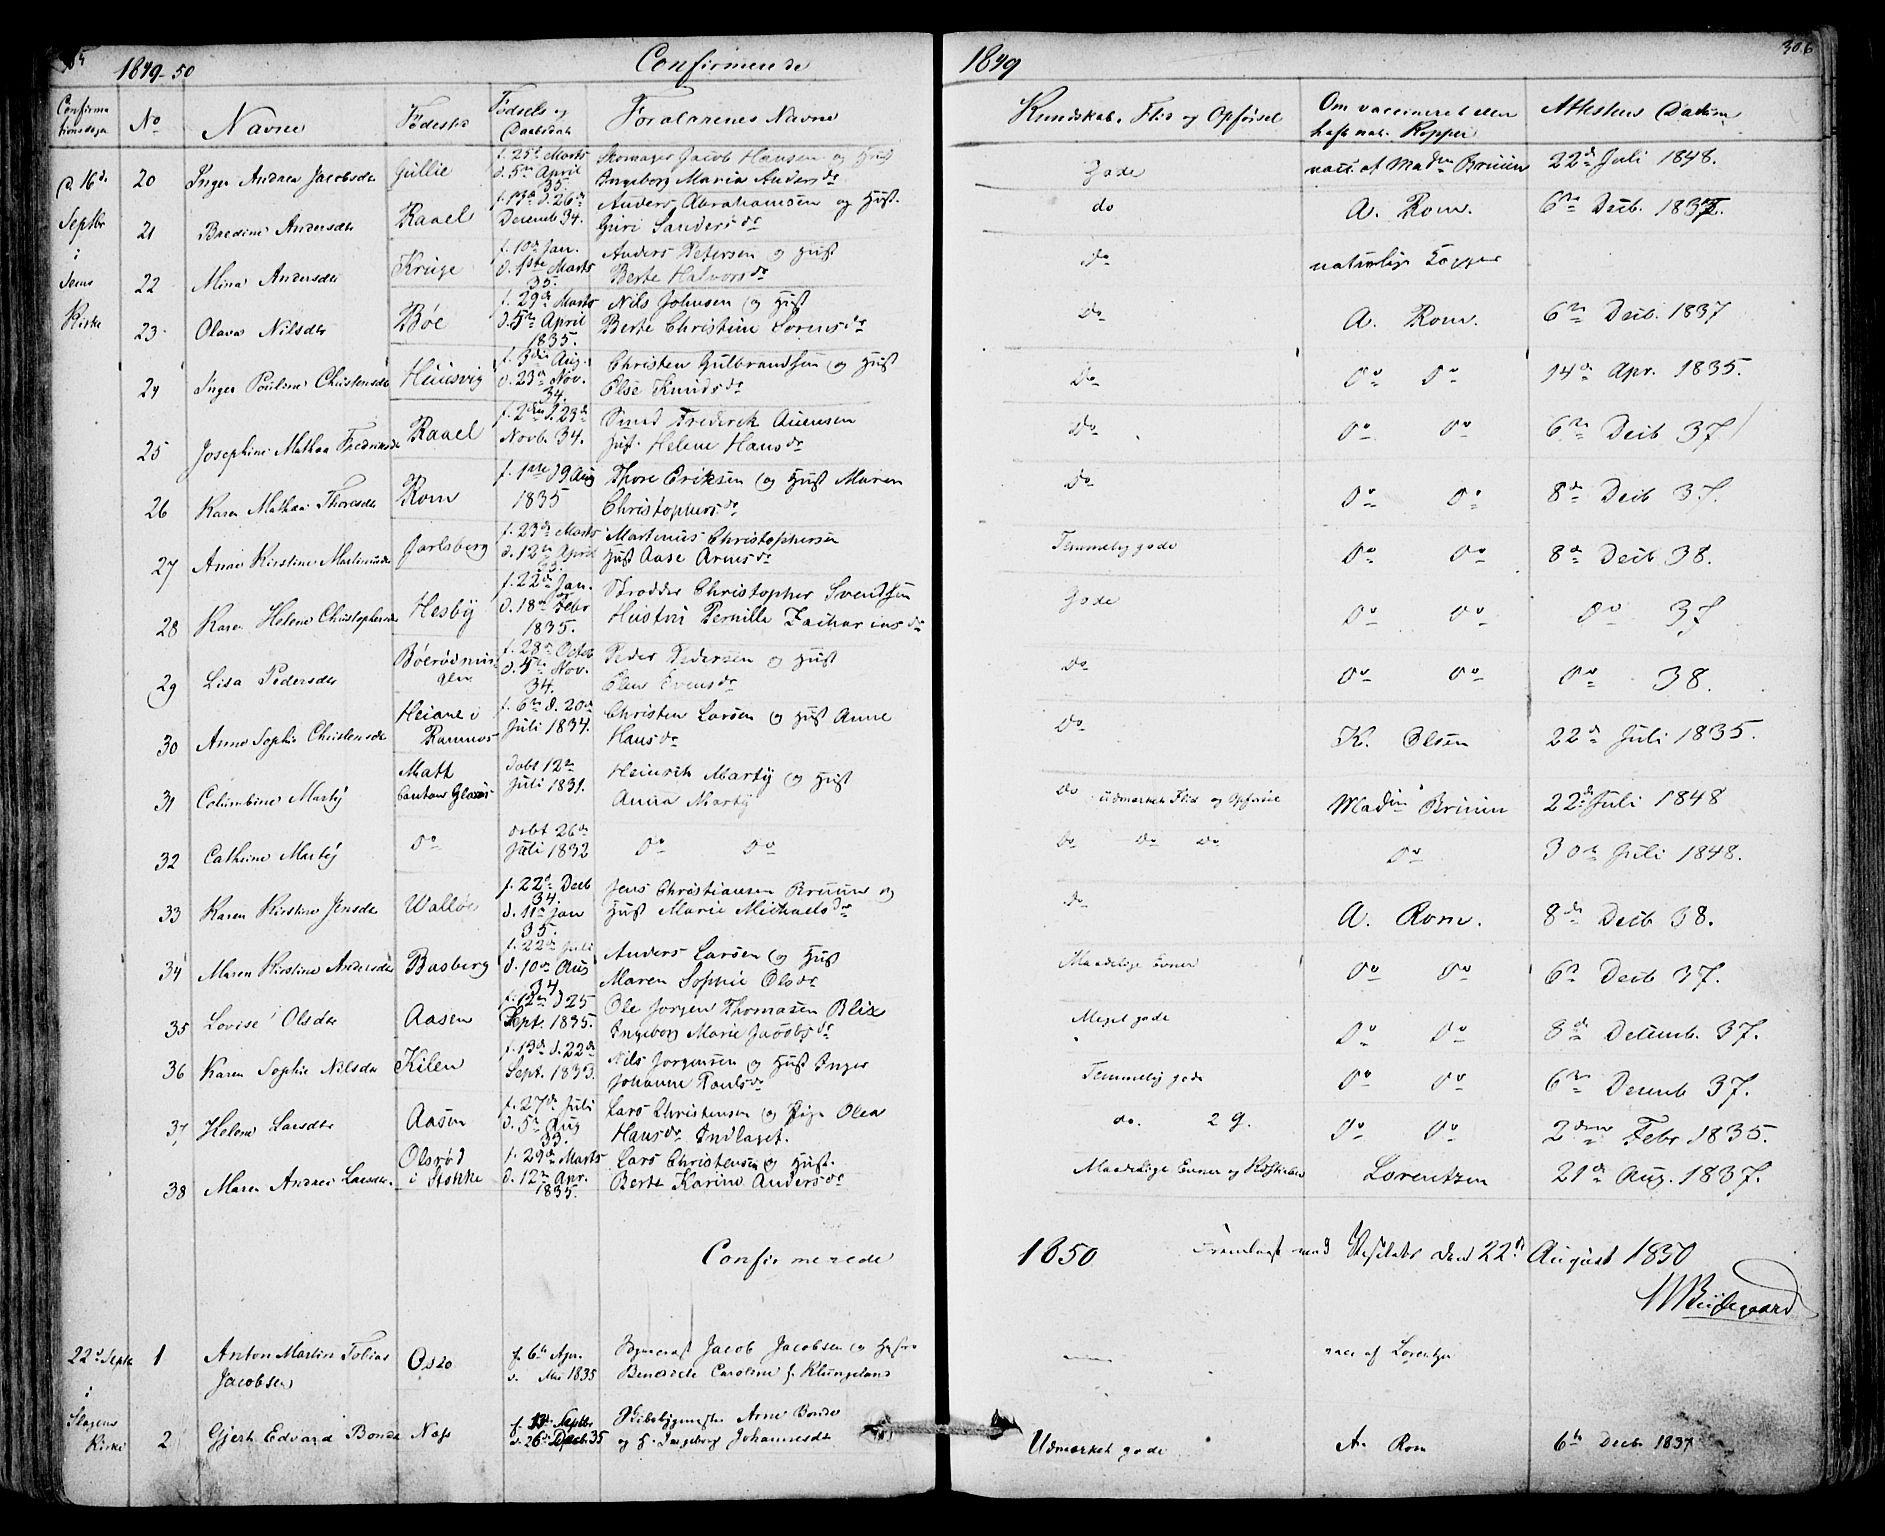 1849-50
Confirmerede
Confirma
tionsdagen
No
Navne
Fødested
Fødsels og
Daabsdat
Forældrenes Navne
d. 16d.
Septbr
i
Sems
Kirke
20 Inger Andrea Jacobsdtr Gullie f. 25d Marts d. 5te April 35. Skomager Jacob Hansen og Hust Ingeborg Maria Andersdr
21 Bredine Andersdtr Raael f. 13de d. 26de Decemb 34. Anders Abrahamsen og Hust. Guri Sandersdr
22 Mina Andersdtr Kruge f. 10de Jan. d. 1ste Marts 35. Anders Petersen og Hust Berte Halvorsdr
23 Olava Nilsdtr Bøe f. 29de Marts d. 5te April 1835. Nils Johnsen og Hust Berte Christine Sorensdr
24 Inger Pouline Christensdtr Huusvig f. 3die Aug. d. 23de Nov. 34. Christen Gulbrandsen og Hust Else Knudsdr
25 Josephine Mathea Fredriksdtr Raael f. 2den d. 23de Novb. 34. Smed Frederik Auensen Hust. Helene Hansdr
26 Karen Mathea Thoresdtr Rom f. 1ste d 9 Aug 1835 Thore Eriksen og Hust Maren Christophersdr
27 Anne Kirstine Martinusdtr Jarlsberg f. 23de Marts d. 12te April 35. Martinus Christophersen Hust Aase Arnesdr
28 Karen Helene Christophersdtr Hesby f. 22de Jan. d. 18de Febr 1835. Skrædder Christopher Svendsen Hustru Pernille Zachariasdr
29 Lisa Pedersdtr Bøerødmin f. 28de Octob d. 4de Nov. 34. Peder Pedersen og Hust Elen Evensdr
30 Anne Sophie Christensdtr Heiane i Ramnæs f. 6te d. 20de Juli 1834. Christen Larsen og Hust Anne Hansdr
31 Columbine Marty Matt Canton Glarus Døbt 12te Juli 1831. Heinrik Marty og Hust Anna Marty
32 Cathrine Marty Do døbt 26de Juli 1832 Do Do
33 Karen Kirstine Jensdtr Walløe f. 22d Decb 34 d. 11te Jan 35. Jens Christiansen Bruun og Hust Marie Michaelsdr
34 Maren Kirstine Andersdtr Basberg f. 22de Juli d. 10de Aug 34 Anders Larsen og Hust Maren Sophie Olsdr
35 Lovise Olsdtr Aasen f. 12te d 25 Sept. 1835. Ole Jorgen Thomasen Blix Ingeborg Marie Jacobsdr
36 Karen Sophie Nilsdtr Kilen f. 13de d. 22de Sept. 1833. Nils Jorgensen og Hust Inger Johanne Paulsdr
37 Helene Larsdtr Aasen f. 27de Juli d. 5te Aug 33. Lars Christensen og Pige Olea Hansdr Indlaget.
38 Maren Andrea Larsdtr. Olsrød i Stokke f. 29de Marts d. 12te Apr. 1835. Lars Christensen og Hust. Berte Karine Andersdr
Confirmerede
22d Septbr i Slagens Kirke
1 Anton Martin Tobias Jacobsen Oslo f. 6te Apr. d. Mai 1835 Jacob Jacobsen og Benedicte Caroline f. Klungeland
2 Gjert Edvard Bonde Næs f. 13de Septbr d. 26de Decb. 35 Skibsbygmester Arne Bonde og H. Ingeborg Johannesdtr
1849
306
Kundskab, Flid og Opførsel
Om vaccineret eller
haft nat. Kopper
Attestens Datum
Gode vacc. af Madm Bruun 22de Juli 1848.
do A. Rom. 6te Decb. 1837.
do naturlige Kopper
Do A. Rom. 6te Decb. 1837
Do Do Do 14de Apr. 1835.
Do Do Do 6te Decb 37
Do Do Do 8de Decb 37.
Temmelig gode Do Do 8de Decb 38.
Gode Do Do Do 37
Do Do Do Do 38.
Do K. Olsen 22de Juli 1835.
Do udmærket Flid og Opførsel Madm Bruun 22de Juli 1848
Do Do Do Do 30te Juli 1848.
Do A. Rom. 8de Decb 38.
Maadelige Evner Do Do 6te Decb 37.
Meget gode Do Do 8de Decemb. 37.
Temmelig gode Do Do 6te Decemb 37.
do. 2 g. Do Do 2den Febr 1835.
Maadelige Evner og Kundskaber Lorentzen 21de Aug. 1837.
1850
Fremlagt ved Visitats den 22de August 1850
vacc af Lorentzen
Udmærket gode A. Rom 6te Decb 1837